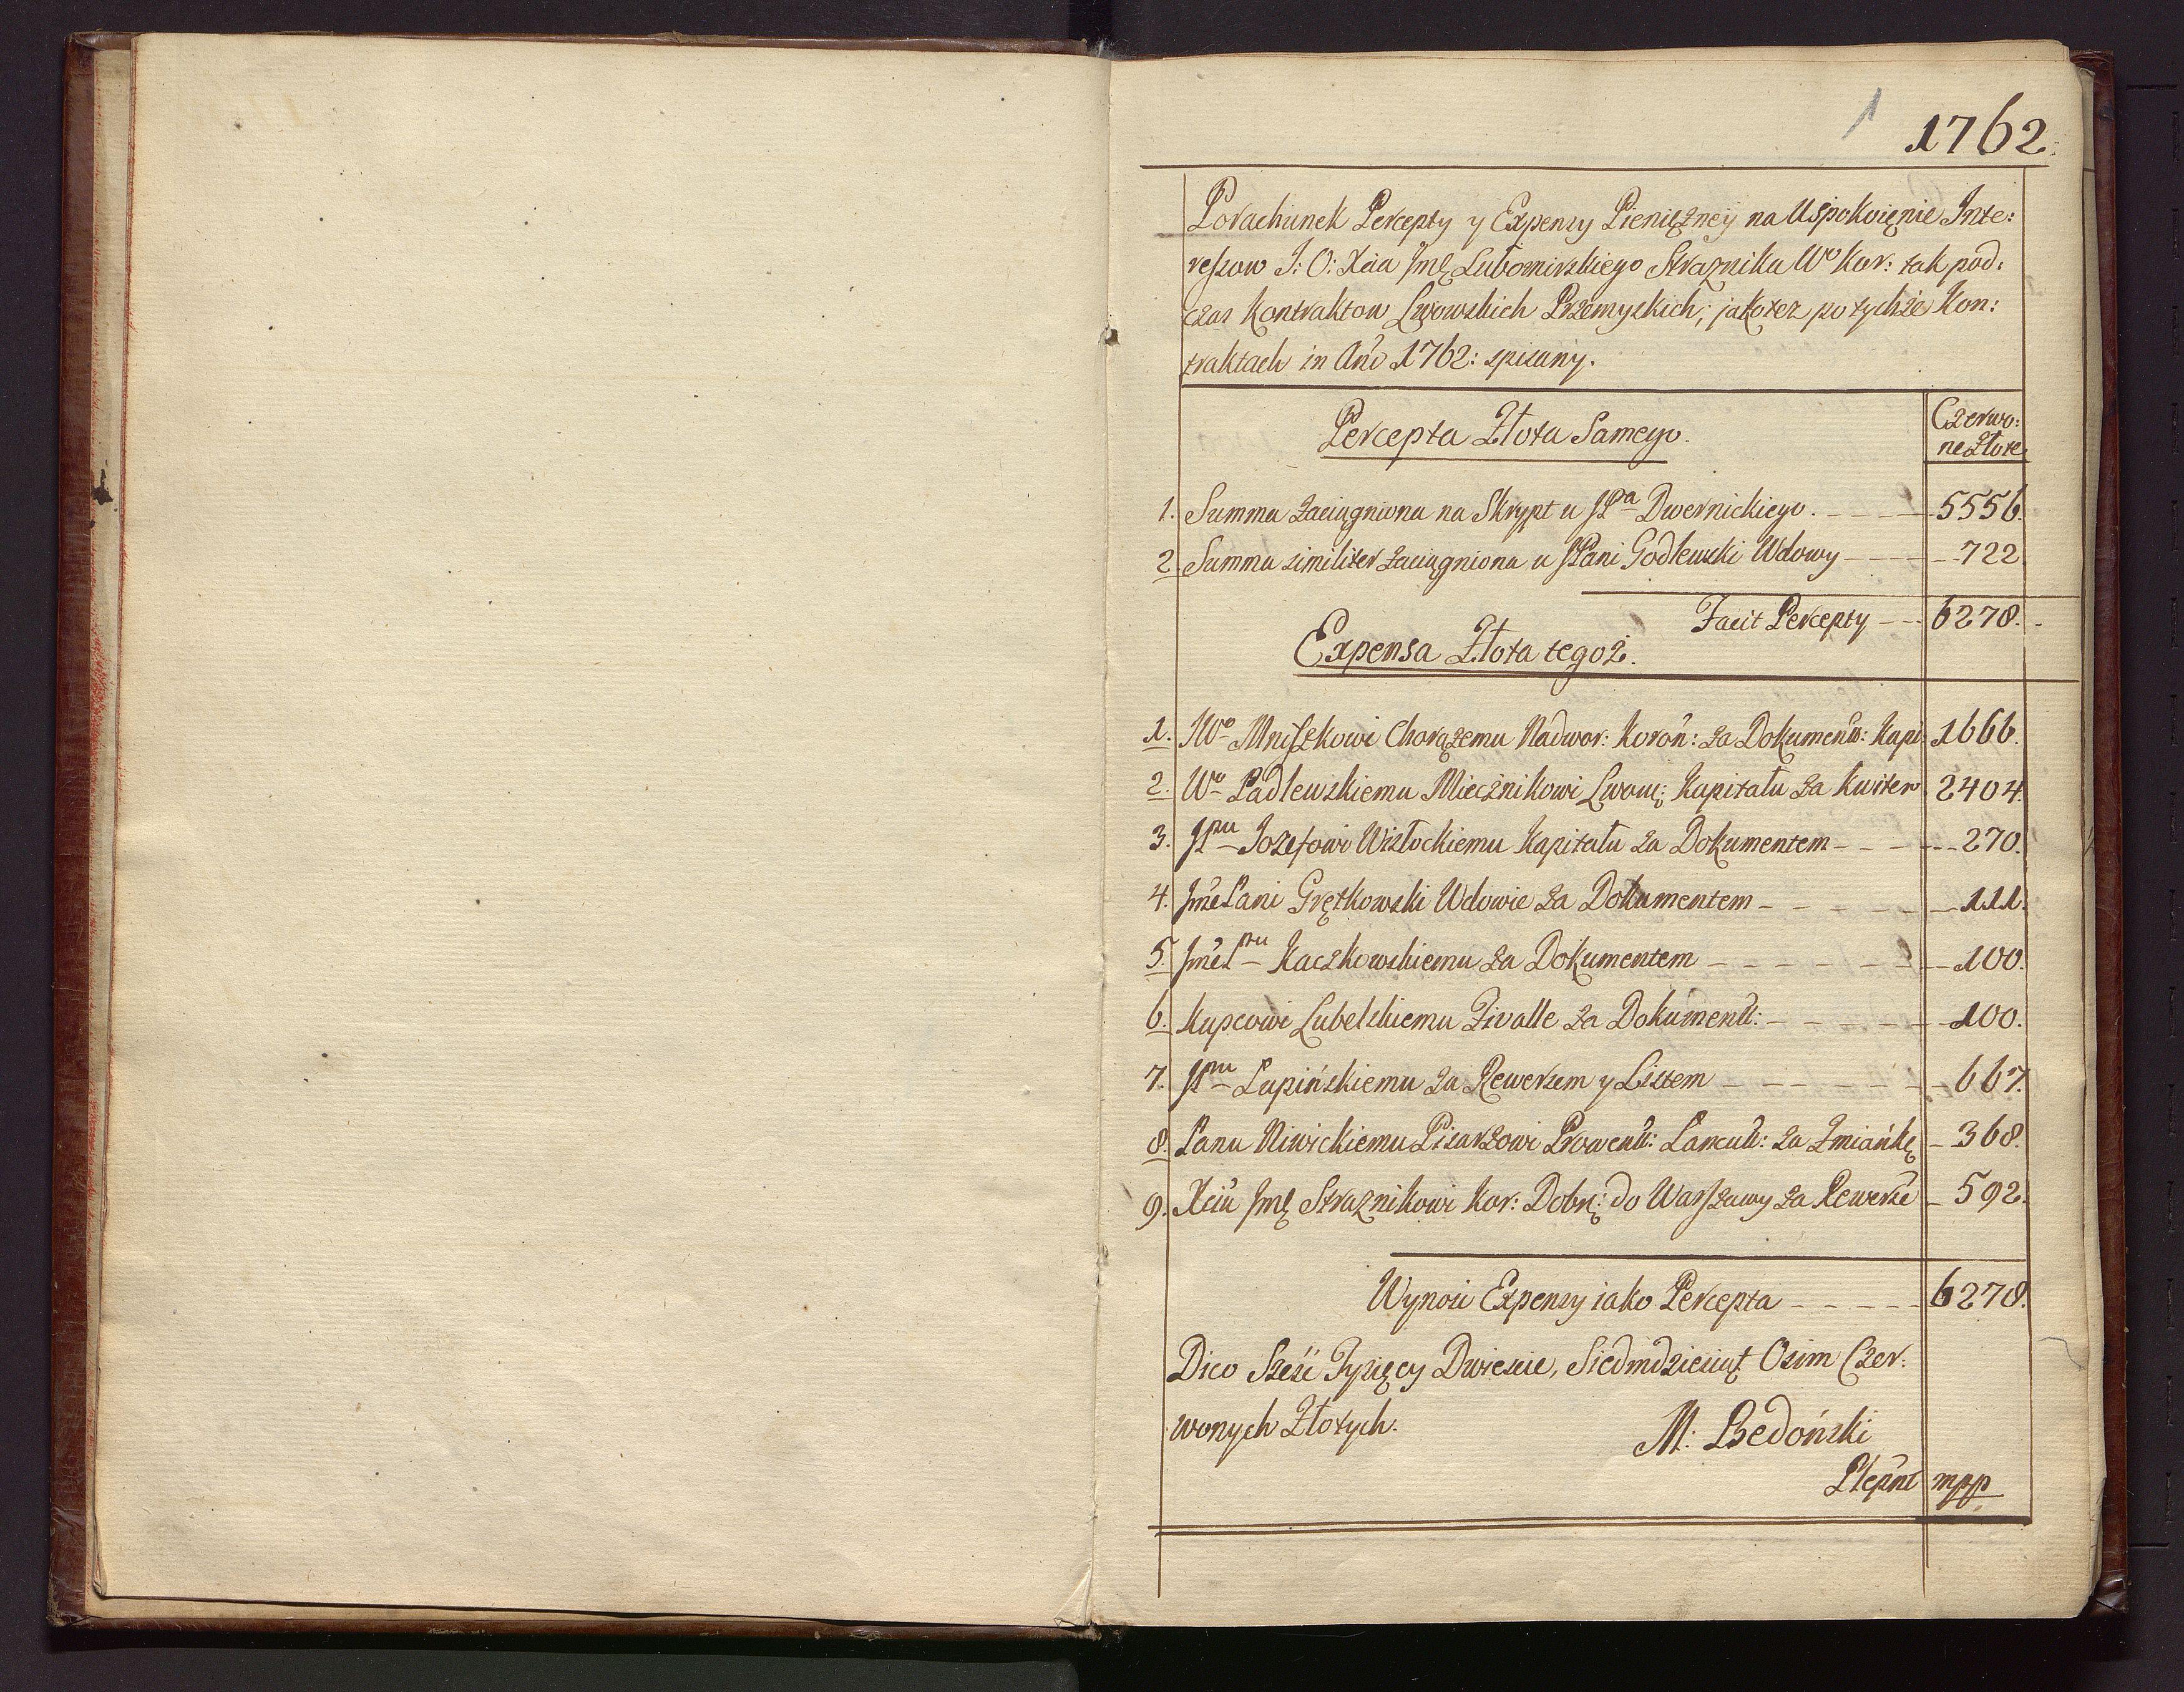 1
1762.
Porachunek Percepty y Expensy Pieniężneÿ na Uspokoięnie Inte:
reszow J: O: Xcia Jmę Lubomirskiego Straznika Wo Kor: tak pod:
czas Kontraktow Lwowskich Przemyskich, jakotez po tychże Kon:
traktach in Ano 1762: spisany.
Percepta Złota Samego.
Czerwo:
ne Złote
1. Summa zaciągniona na Skrypt u JPa Dwernickiego. 5556.
2. Summa similiter zaciągniona u JPani Godlewski Wdowy 722
Facit Percepty 6278.
Expensa Złota tegoż.
1. Wo Mniszkowi Chorążemu Nadwor: Koron: za Dokument: Kapi: 1666.
2. Wo Padlewskiemu Miecznikowi Lwow: Kapitału za Kwitem 2404.
3. JPu Jozefowi Wisłockiemu Kapitału za Dokumentem 270.
4. Jmć Pani Grętkowski Wdowie za Dokumentem 111.
5. Jmć Pnu Kaczkowskiemu za Dokumentem 100.
6. Kupcowi Lubelskiemu Fivalle za Dokument: 100.
7. JPnu Łapińskiemu za Rewersem y Listem 667.
8. Panu Niwickiemu Pisarzowi Prowent: Łancut: za Zmiankę 368.
9. Xciu Jmę Straznikowi Kor: Dobr: do Warszawy za Rewerse 592.
Wynosi Expensy iako Percepta 6278.
Dico Sześć Tysięcy Dwieście, Siedmdziesiąt Osim Czer:
wonych Złotych.
M: Bedoński
Plepnt mpp